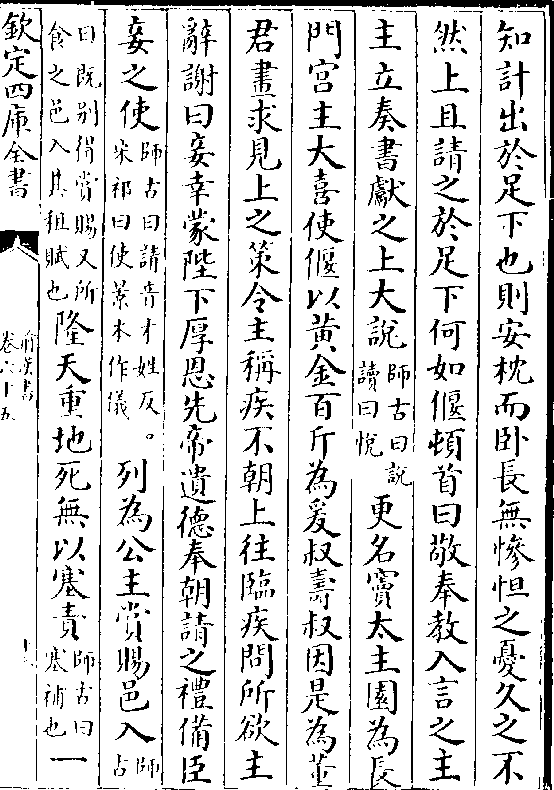 知計出於足下也則安枕而卧長無慘怛之憂久之不
然上且請之於足下何如偃頓首曰敬奉教入言之主
主立奏書獻之上大說師古曰說讀曰悅更名竇太主園為長
門宮主大喜使偃以黃金百斤為爰叔壽叔因是為董
君畫求見上之策令主稱疾不朝上往臨疾問所欲主
辭謝曰妾幸蒙陛下厚恩先帝遺德奉朝請之禮備臣
妾之使師古曰請音才姓反。宋祁曰使景本作儀列為公主賞賜邑入師古
曰既别得賞賜又所食之邑入其租賦也隆天重地死無以塞責師古曰塞補也一
欽定四庫全書
前漢書
卷六十五